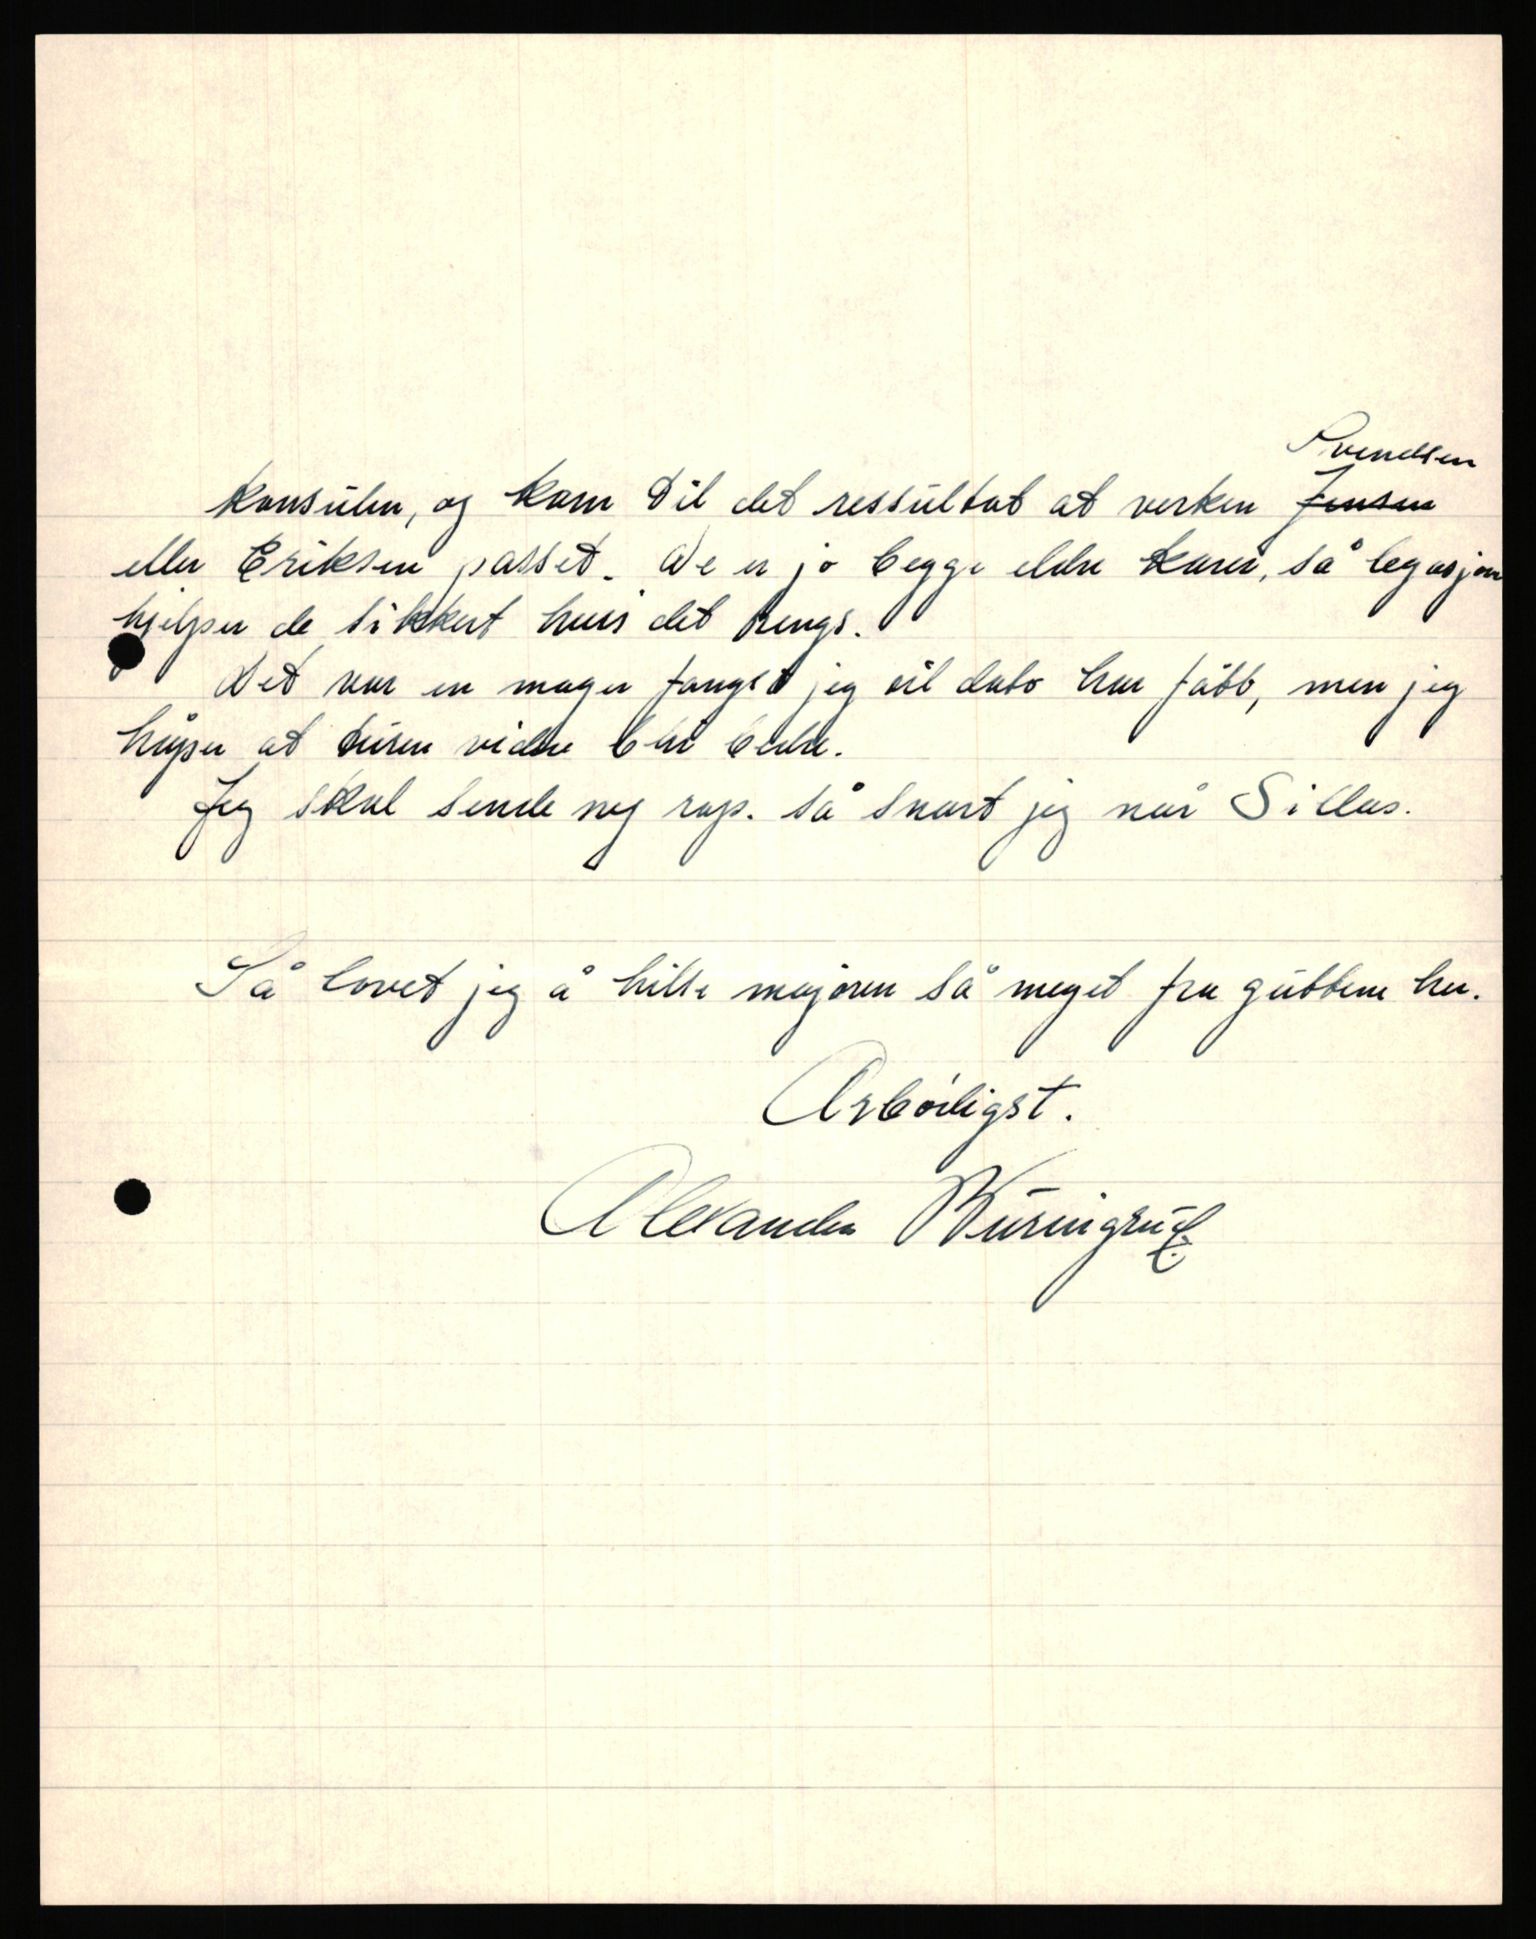 Svendsen
konsulen, og kom til det ressultat at verken Jensen
eller Eriksen passet. De er jo begge eldre karer, så legasjon
hjelper de sikkert hvis det trengs.
Det var en mager fangst jeg til dato har fått, men jeg
håper at turen videre blir bedre.
Jeg skal sende ny rap. så snart jeg når Dillas.
Så lovet jeg å hilse majoren så meget fra guttene her.
Arbödigst.
Alexander